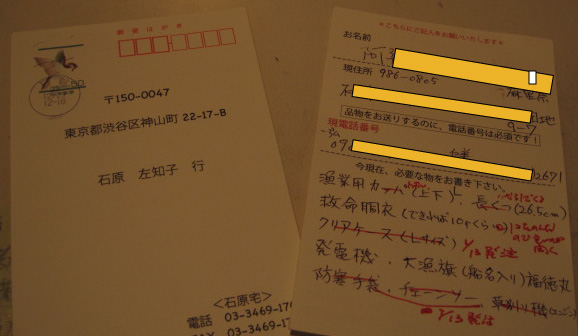 郵便はがき
50
12-18
〒150-0047
東京都渋谷区神山町 22-17-B
石原 左知子 行
<石原宅>
電話 03-3469-17
03-3469-1
*こちらにご記入をお願いいたします*
お名前
現住所 986-0805
団地
9-7
品物をお送りするのに、電話番号は必須です!
現電話番号
090
02671
今現在、必要な物をお書き下さい。
漁業用カッパ(上下)、長ぐつ(26.5cm)
救命胴衣(できれば10ケくらい)
クリアケース(Lサイズ) 1/13発注
発電機、大漁旗(船名入り)福徳丸
防寒手袋、チェーンソー、草かり機
1/13発注